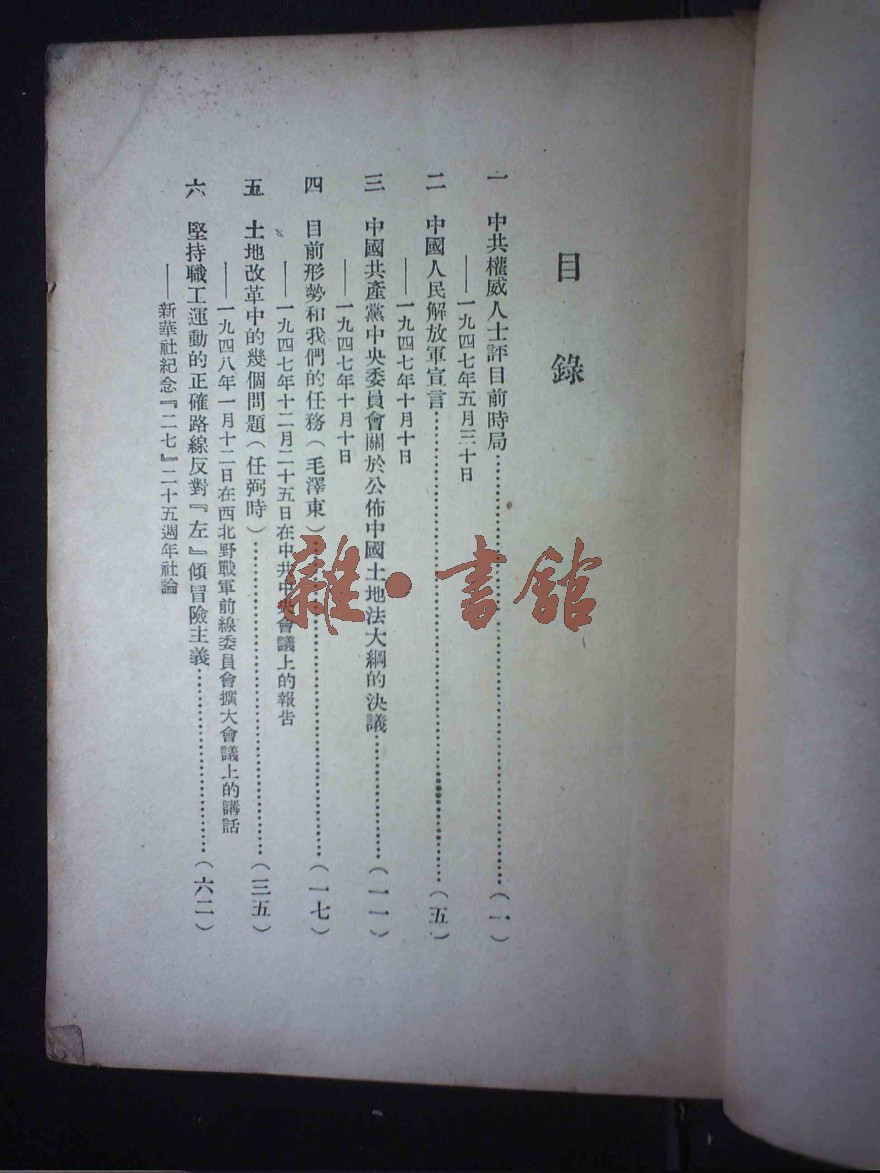 目錄
一 中共權威人士評目前時局……(一)
——一九四七年五月三十日
二 中國人民解放軍宣言……(五)
——一九四七年十月十日
三 中國共產黨中央委員會關於公佈中國土地法大綱的決議……(一一)
——一九四七年十月十日
四 目前形勢和我們的任務(毛澤東)……(一七)
——一九四七年十二月二十五日在中共中央會議上的報告
五 土地改革中的幾個問題(任弼時)……(三五)
——一九四八年一月十二日在西北野戰軍前線委員會擴大會議上的講話
六 堅持職工運動的正確路線反對『左』傾冒險主義……(六二)
——新華社紀念『二七』二十五週年社論
雜·書館